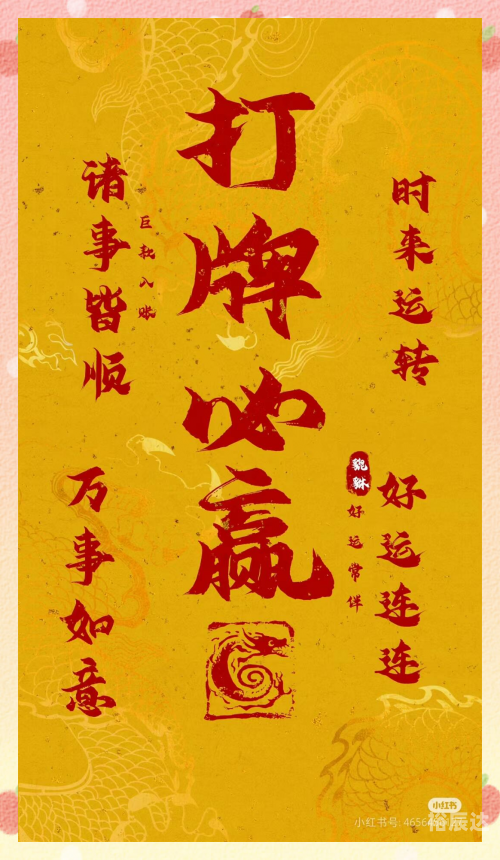 打牌必赢
时来运转
诸事皆顺
巨款入账
貔貅
好运常伴
好运连连
万事如意
小红书
裕辰达